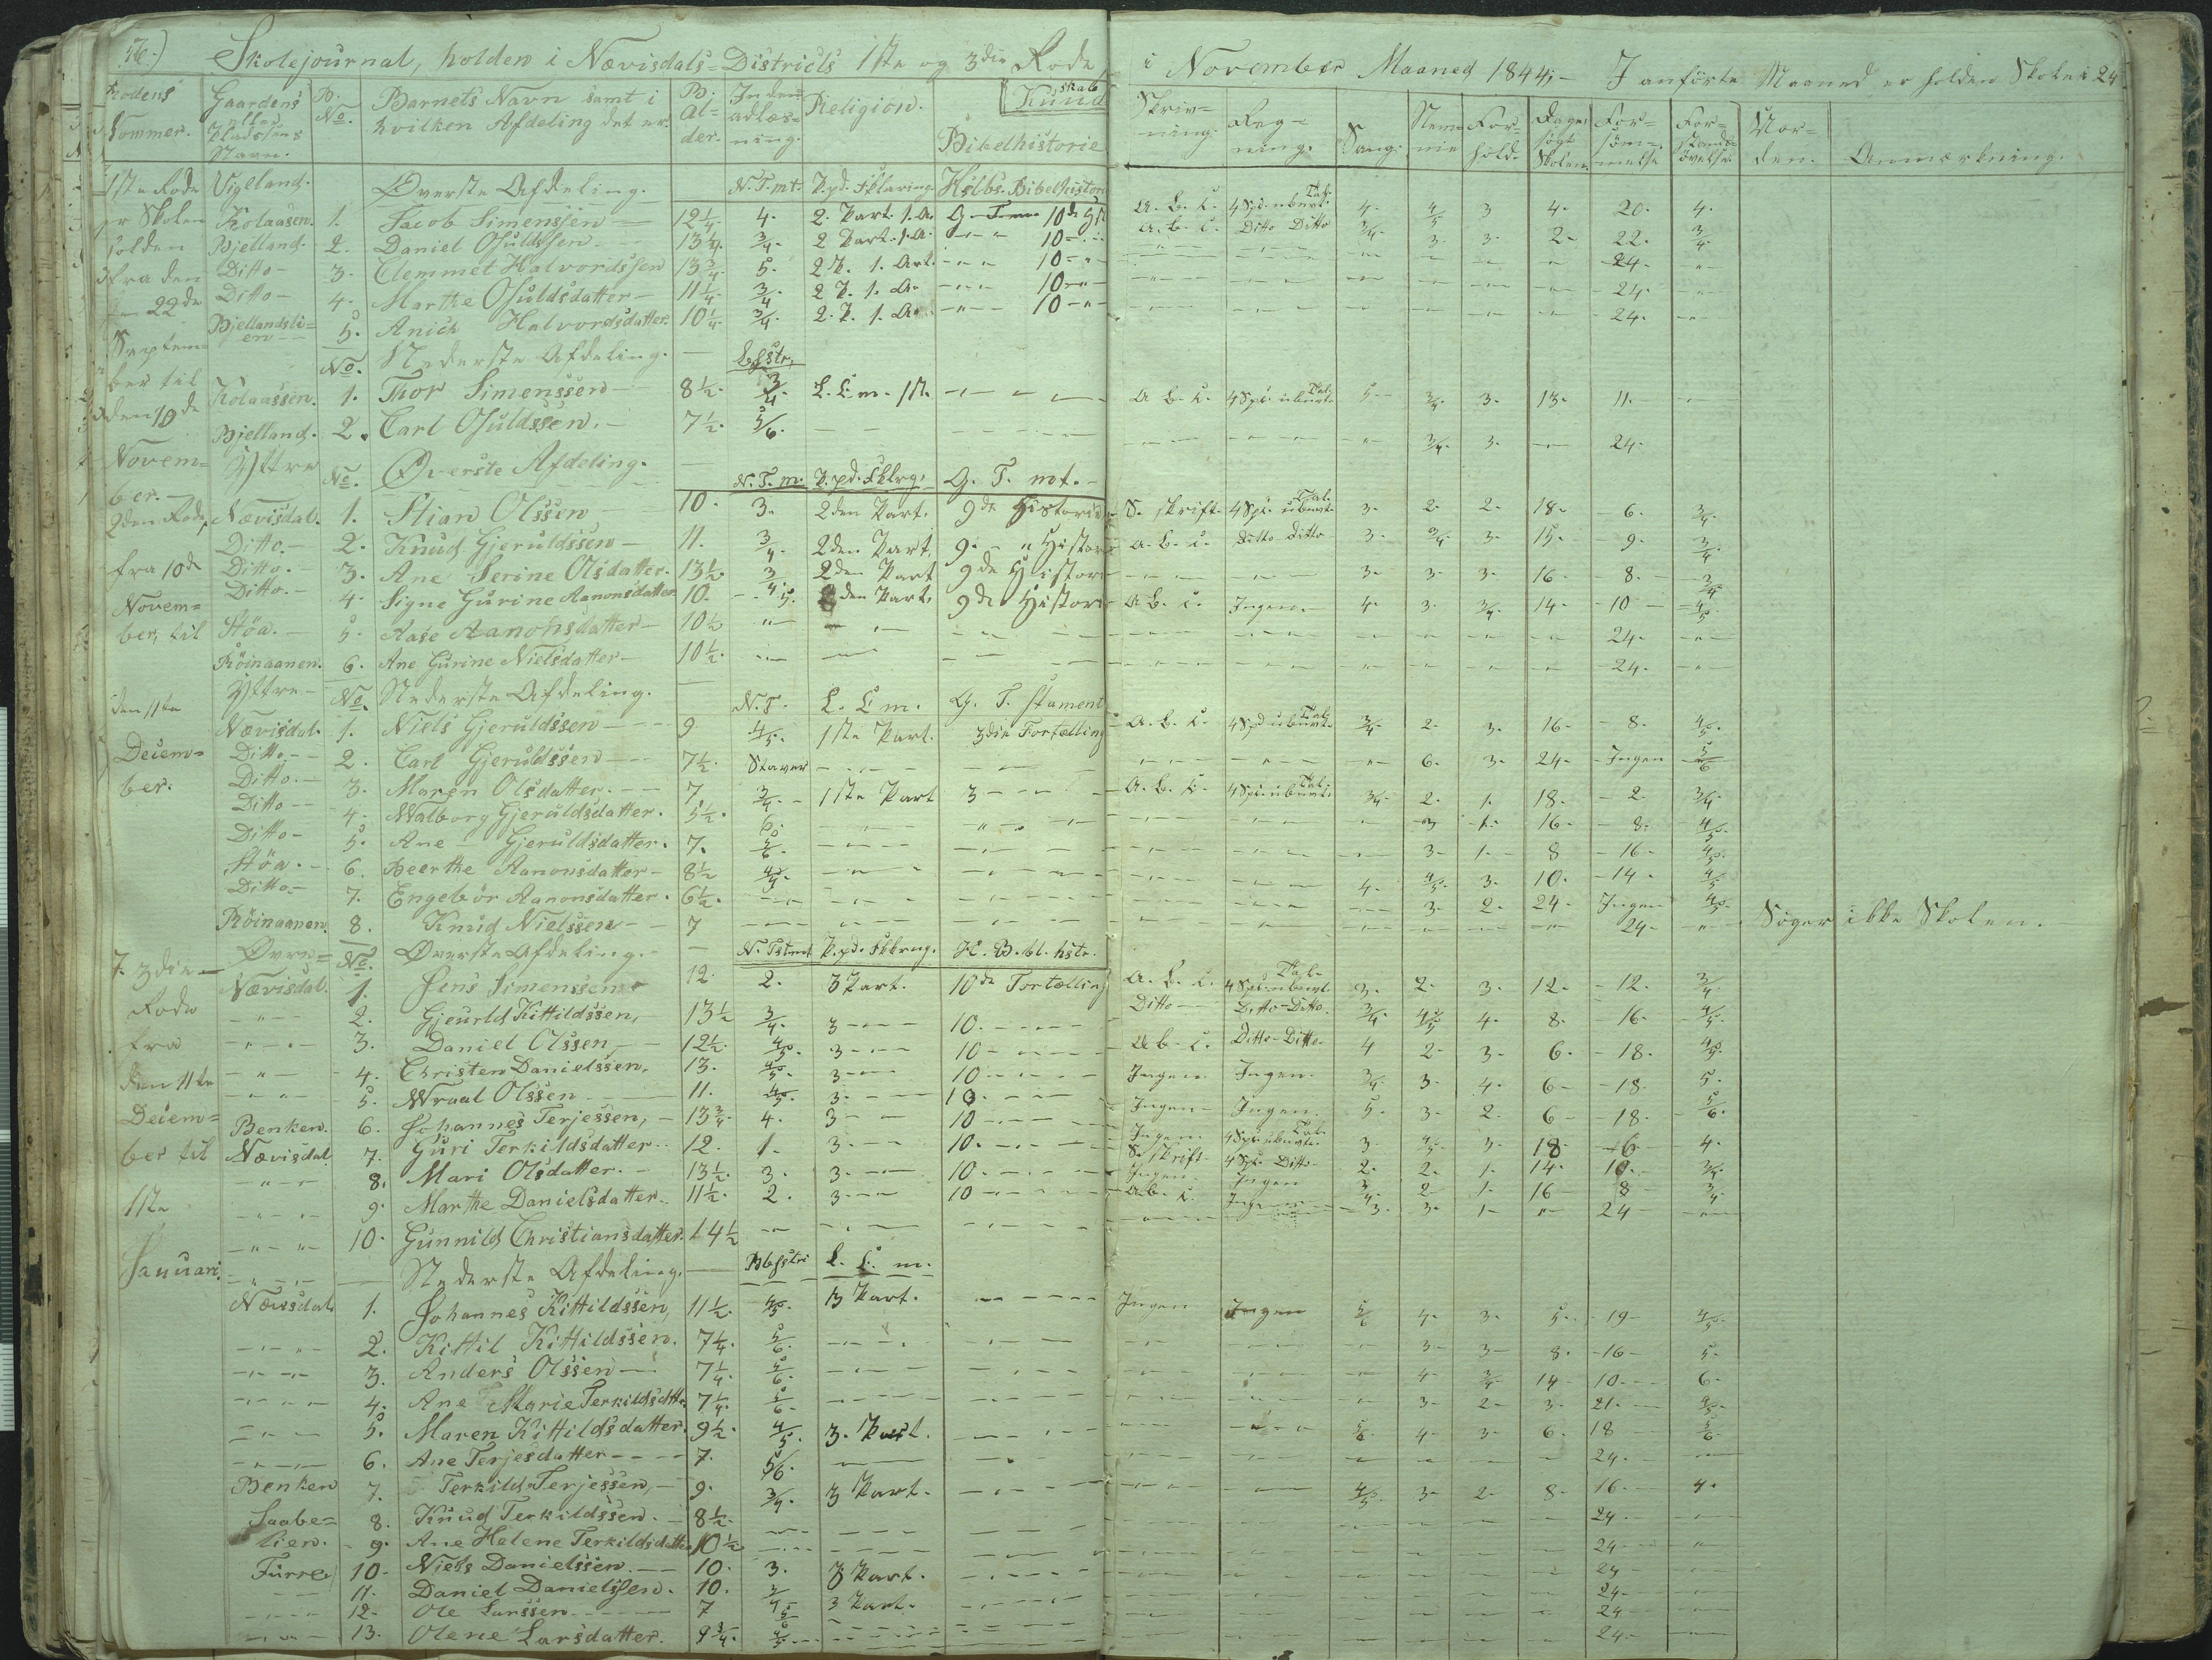 Skolejournal, holden i Nævisdals-Districts 1ste og 3die Rode i November Maaned 1844;- I anförte Maaned er holden Skole i 24
Rodens Nommer. Gaardens eller Pladsens Navn. B. No. Barnets Navn samt i hvilken Afdeling det er. B. Al-der. Inden-adlæs-ning. Religion. Kundskab Bibelhistorie Skriv-ning. Reg-ning. Sang. Nem-me For-hold. Dage søgt Skolen. For-söm-melse For-stands-övelse. Vor-den. Anmærkning.
1ste Rode Vigeland. Øverste Afdeling. N. T. mt. P.pd. Fklaring. Hslbs. Bibelhistorie
er Skolen Kolaasen. 1. Jacob Simenssen 12 1/4 4. 2. Part. 1. A. G. 10de A. b. c. 4 Spc. ubnvt. Tal. 4. 4/5 3 4. 20. 4.
holden Bjelland. 2. Daniel Osuldssen 13 1/4. 3/4. 2 Part. 1. A. - " - 10 - A. b. c. Ditto Ditto 3/4. 3. 3. 2. 22. 3/4.
fra den Ditto - 3. Clemmet Halvordssen 13 3/4. 5. 2 P. 1. Art. - " - 10 - " - 24.
22de Ditto - 4. Marthe Osuldsdatter 11 1/4 3/4 2 P. 1. A. - " - 10 - " - 24.
Septem- Bjellandsli-en 5. Anich Halvordsdatter. 10 1/4. 3/4. 2. P. 1. A. - " - 10 - " - 24.
ber til No. Nederste Afdeling.
den 10de Kolaassen. 1. Thor Simenssen 8 1/2. 3/4. L. C. m. 1st. A. b. c. 4 Spc. ubnvt. Tal. 5 3/4. 3. 13. 11.
Bjelland. 2. Carl Osuldssen. 7 1/2. 5/6. 3/4. 3. 24.
Novem-ber. Yttre No. Øverste Afdeling. N. T. m. P. pd. Fklrg. G. T. mt.
2den Rode, Nævisdal. 1. Stian Olssen 10. 3. 2den Part. 9de Historie S. skrift. 4 Spc. ubnvt. Tal. 3. 2. 2. 18. 6. 3/4.
Ditto. 2. Knud Gjeruldssen 11. 3/4. 2den Part. 9. - " Histor A. b. c. Ditto Ditto 3. 3/4. 3. 15. 9. 3/4.
fra 10de Ditto. 3. Ane Serine Olsdatter. 13 1/2. 3/4 2den Part 9de Histor 3. 3. 3. 16. 8. 3/4
Novem- Ditto. 4. Signe Gurine Aanonsdatter 10. 4/5. 2den Part. 9de Histor A. b. c. Ingen. 4. 3. 3/4. 14. 10 4/5.
ber, til Stöa. 5. Aase Aanonsdatter 10 1/2 24.
Röinaanen. 6. Ane Gurine Nielsdatter 10 1/2. 24.
den 11te Yttre No. Nederste Afdeling. N. T. L. C. m. G. T. stament
Nævisdal. 1. Niels Gjeruldssen 9 4/5. 1ste Part. 3die Fortælling A. b. c. 4 Spc. ubnvt. Tal. 3/4 2. 3. 16. 8. 4/5.
Decem- Ditto. 2. Carl Gjeruldssen 7 1/2. Staver 6. 3. 24. Ingen 5/6
ber. Ditto. 3. Maren Olsdatter. 7. 3/4. 1ste Part 3 A. b. c. 4 Spc. ubnvt. Tal. 3/4. 2. 1. 18. 2. 3/4.
Ditto 4. Walborg Gjeruldsdatter. 5 1/2. 6. 3 1. 16. 8. 4/5.
Ditto 5. Ane Gjeruldsdatter. 7. 5/6. 3. 1. 8 16. 4/5.
Stöa. 6. Beerthe Aanonsdatter 8 1/2 4. 4/5. 3. 10. 14. 4/5
Ditto. 7. Engebör Aanonsdatter. 6 1/2. 3. 2. 24. Ingen 4/5.
Röinaanen. 8. Knud Nielssen 7 24. Söger ikke Skolen.
3die Øvre- No. Øverste Afdeling. N. Tstmt P.pd. Fklrng. H. B. bl. hstr.
Rode Nævisdal. 1. Jens Simenssen 12. 2. 3 Part. 10de Fortælling A. b. c. 4 Spc. ubnvt. Tal. 3. 2. 3. 12. 12. 3/4.
2. Gjeurld Kittildssen, 13 1/2 3/4. 3 10. Ditto Ditto-Ditto. 3/4. 4/5 4. 8. 16. 4/5.
fra 3. Daniel Olssen 12 1/2. 4/5. 3 10 A. b. c. Ditto-Ditto. 4 2. 3. 6. 18. 4/5.
den 11te 4. Christen Danielssen. 13. 4/5. 3 10 Ingen. Ingen. 3/4. 3. 4. 6 18. 5.
5. Wraal Olssen 11. 4/5. 3. 10. Ingen Ingen. 5. 3. 2. 6 18. 5/6.
Decem- Benken. 6. Johannes Terjessen, 13 3/4. 4. 3 10 Ingen. 4 Spc. ubnvt. Tal. 3. 4/5. 3. 18 6. 4.
ber til Nævisdal 7. Guri Terkildsdatter 12. 1. 3 10. S. skrift. 4 Spc. Ditto. 2. 2. 1. 14. 10. 3/4.
8. Mari Olsdatter. 13 1/2. 3. 3. 10. Ingen. Ingen 3/4. 2. 1. 16 8 3/4.
1ste 9. Marthe Danielsdatter. 11 1/2. 2. 3 10 A. b. c. Ingen 3. 3. 1 24
10. Gunnild Christiansdatter. 14 1/2
Januari. Nederste Afdeling. L. C. m.
Nævisdal 1. Johannes Kittildssen, 11 1/2. 4/5. 3 Part. Ingen Ingen 5/6 4. 3. 5. 19 4/5.
2. Kittil Kittildssen. 7 1/4. 5/6. 3 3 8. 16 5.
3. Anders Olssen 7 1/4. 5/6. 4. 3/4. 14 10 6.
4. Ane Marie Terkildsdttr 7 1/4. 5/6. 3. 2 3. 21. 4/5.
5. Maren Kittildsdatter. 9 1/2. 4/5. 3. Part. 5/6. 4. 3 6. 18 5/6.
6. Ane Terjesdatter 7. 5/6. 24.
Benken 7. Terkild Terjessen, 9. 3/4. 3 Part. 4/5. 3. 2. 8. 16. 4.
Saabe- 8. Knud Terkildssen. 8 1/2. 24.
lien. 9. Ane Helene Terkildsdatter 10 1/2 24
Furre 10. Niels Danielssen. 10. 3. 3 Part. 24
11. Daniel Danielssen. 10. 3/4 3 Part. 24
12. Ole Larssen 7 5/6 24
13. Olene Larsdatter. 9 3/4. 4/5 24.